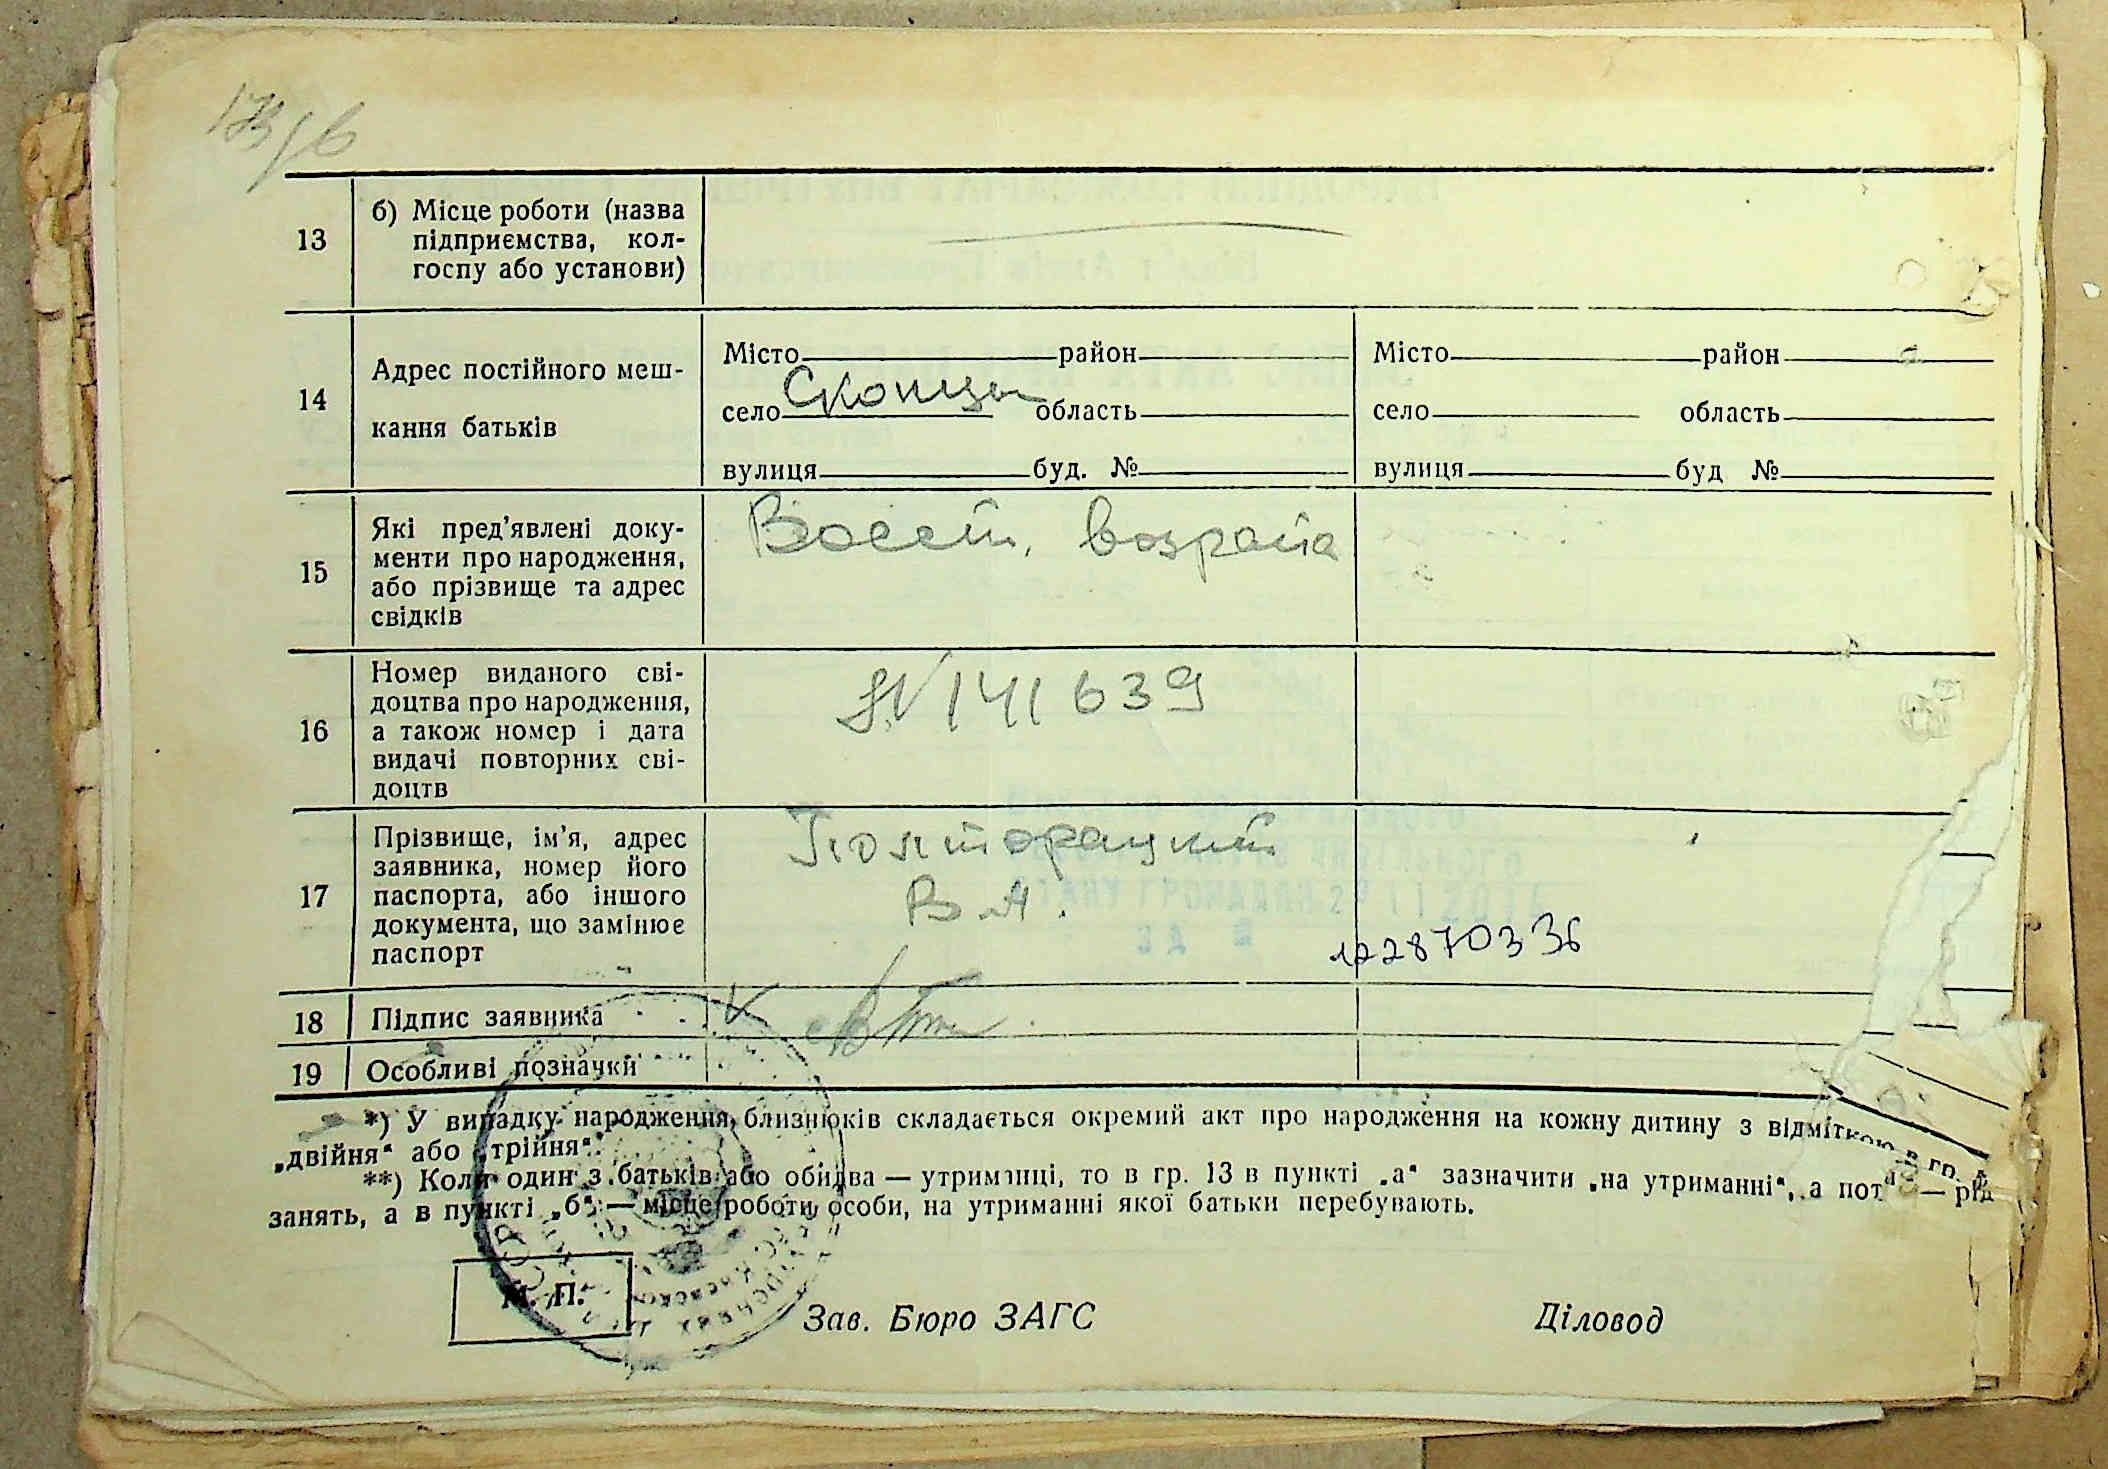 13 б) Місце роботи (назва
підприємства, кол-
госпу або установи)
14 Адрес постійного меш-
кання батьків
Місто район
село Скопцы область
вулиця буд. №
Місто район
село область
вулиця буд №
15 Які пред'явлені доку-
менти про народження,
або прізвище та адрес
свідків
Восст. возраста
16 Номер виданого сві-
доцтва про народження,
а також номер і дата
видачі повторних сві-
доцтв
141639
17 Прізвище, ім'я, адрес
заявника, номер його
паспорта, або іншого
документа, що замінює
паспорт
Полторацкий
В. А.
122870336
18 Підпис заявника
19 Особливі позначки
*) У випадку народження близнюків складається окремий акт про народження на кожну дитину з відміткою в гр.
„двійня“ або „трійня“.
**) Коли один з батьків або обидва — утриманці, то в гр. 13 в пункті „а“ зазначити „на утриманні“, а пот — рід
занять, а в пункті „б“ — місце роботи особи, на утриманні якої батьки перебувають.
М. П.
Зав. Бюро ЗАГС Діловод